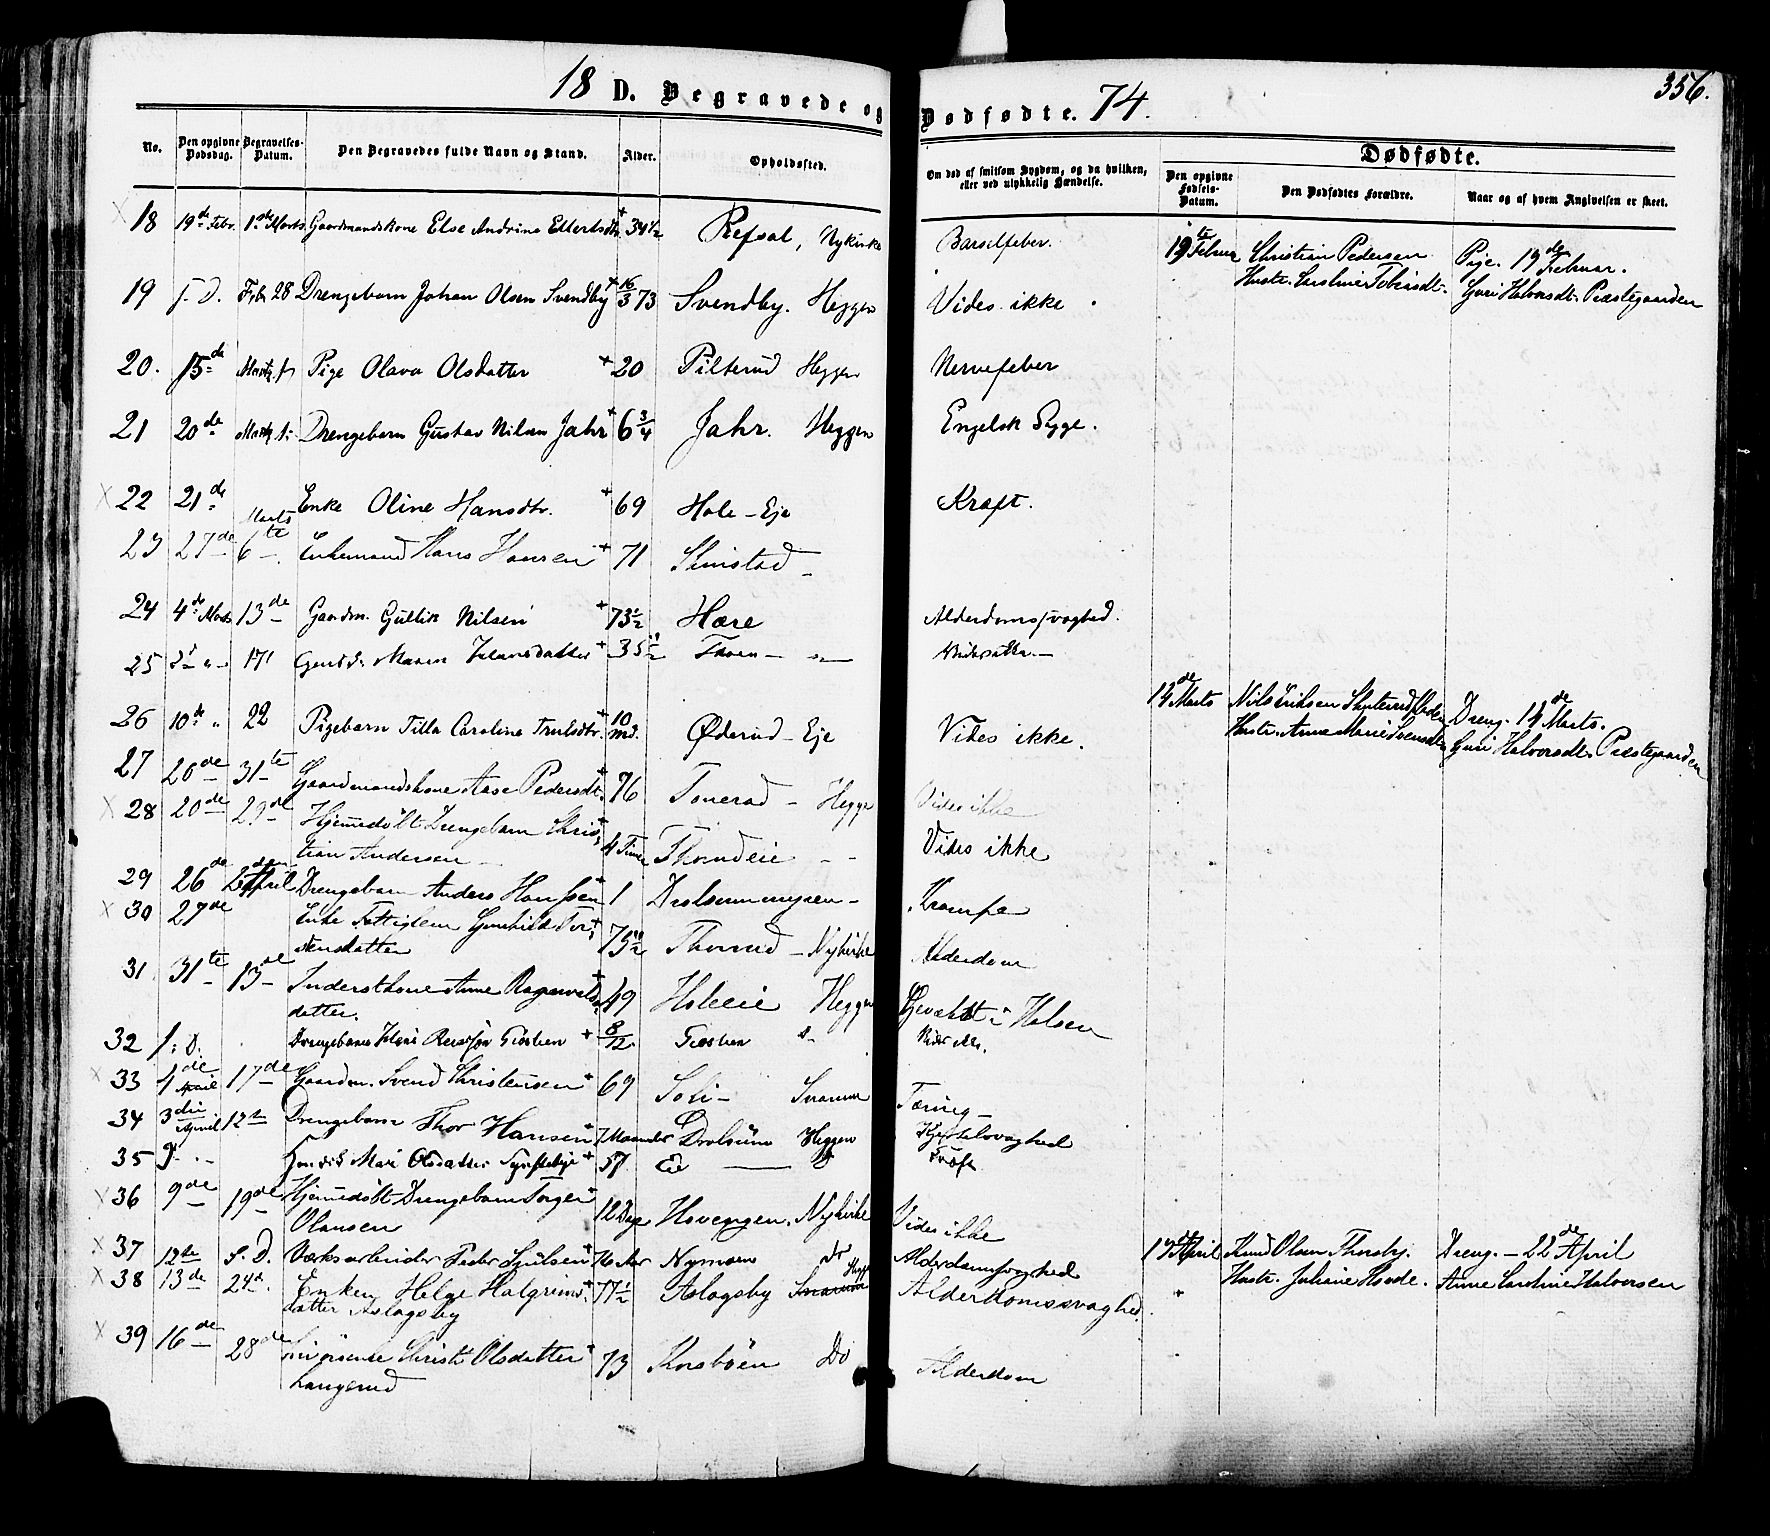 18 D. Begravede og Dødfødte. 74.
356.
No. Den opgivne Dødsdag. Begravelses-Datum. Den Begravedes fulde Navn og Stand. Alder. Opholdssted. Om død af smitsom Sygdom, og da hvilken, eller ved ulykkelig Hændelse.
Dødfødte.
Den opgivne Fødsels-Datum. Den Dødfødtes Forældre. Naar og af hvem Angivelsen er skeet.
18 19de Febr. 1de Marts Gaardmandskone Else Andrine Ellertsdtr + 34 1/2 Refsal, Nykirke Barselfeber.
19de Februar Christian Pedersen Pige. 19de Februar.
Hustr. Caroline Tobiasdt. Guri Halvorsdt. Præstegaarden
19 f. D. Febr 28 Drengebarn Johan Olsen Svendby + 16/3 73 Svendby. Heggen Vides ikke
20. 15de Marts 1 Pige Olava Olsdatter + 20 Pilterud Heggen Nervefeber
21 20de Marts 1. Drengebarn Gustav Nilsen Jahr + 6 3/4 Jahr. Heggen Engelsk Syge.
22 21de Enke Oline Hansdtr. + 69 Hole - Eje Kræft.
23 27de Marts 6te Enkemand Hans Hansen + 71 Simstad -
24 4de Marts 13de Gaardm. Gullik Nilsen + 73 1/2 Hære Alderdomssvaghed.
25 17 Maren + 35 1/2
14de Marts Nils Eriksen Dreng. 14de Marts.
Hustr. Anne Marie Svensdtr Guri Halvorsdt. Præstegaarden
26 10de " 22 Pigebarn Tilla Caroline Trulsdtr. + 10 Md. Øderud - Eje Vides ikke.
27 20de 31te Gaardmandskone Aase Pedersdt. + 76 Tonerud - Hegge Vides ikke
28 20de 29de Hjemmedøbt Drengebarn Chris-
tian Andersen - 4 Timer Thorudeie - - Vides ikke
29 26de 2den April Drengebarn Anders Hansen + 1 Drolsummyren - Krampe
30 27de Enke Fattiglem Gunhild Tor-
stensdatter 75 1/2 Thorud - Nykirke Alderdom
31 31te 13de Inderstkone Anne Ragnvalds-
datter. + 49 Holeeie Heggen Gevækst i Halsen
32 f. D. Drengebarn + 8/12 Vides ikke.
33 1de April 17de Gaardm. Svend Christensen + 69 Soli - Snarum Tæring -
34 3die April 12te Drengebarn Thor Hansen + 7 Maaneder Drolsum Heggen
35 9 Mari Olsdatter + 57 Eie Kræft
36 9de 19de Hjemmedøbt Drengebarn Torger +
Olausen 12 Dage Hovengen. Nykirke Vides ikke
37 12te f. D. Værksarbeider Peder + 76 Aar Nymoen do Alderdomssvaghed
17de April Knud Olsen Thorsby. Dreng. - 22de April
Hustr. Juliane Anne Caroline Halvorsen
38 13de 24d. Enken Helge Halgrims-
datter Aslagsby 77 1/2 Aslagsby Snarum Hegg Alderdomssvaghed.
39 16de 28de Christi Olsdatter +
Langerud 73 Korsbøen Do Alderdom